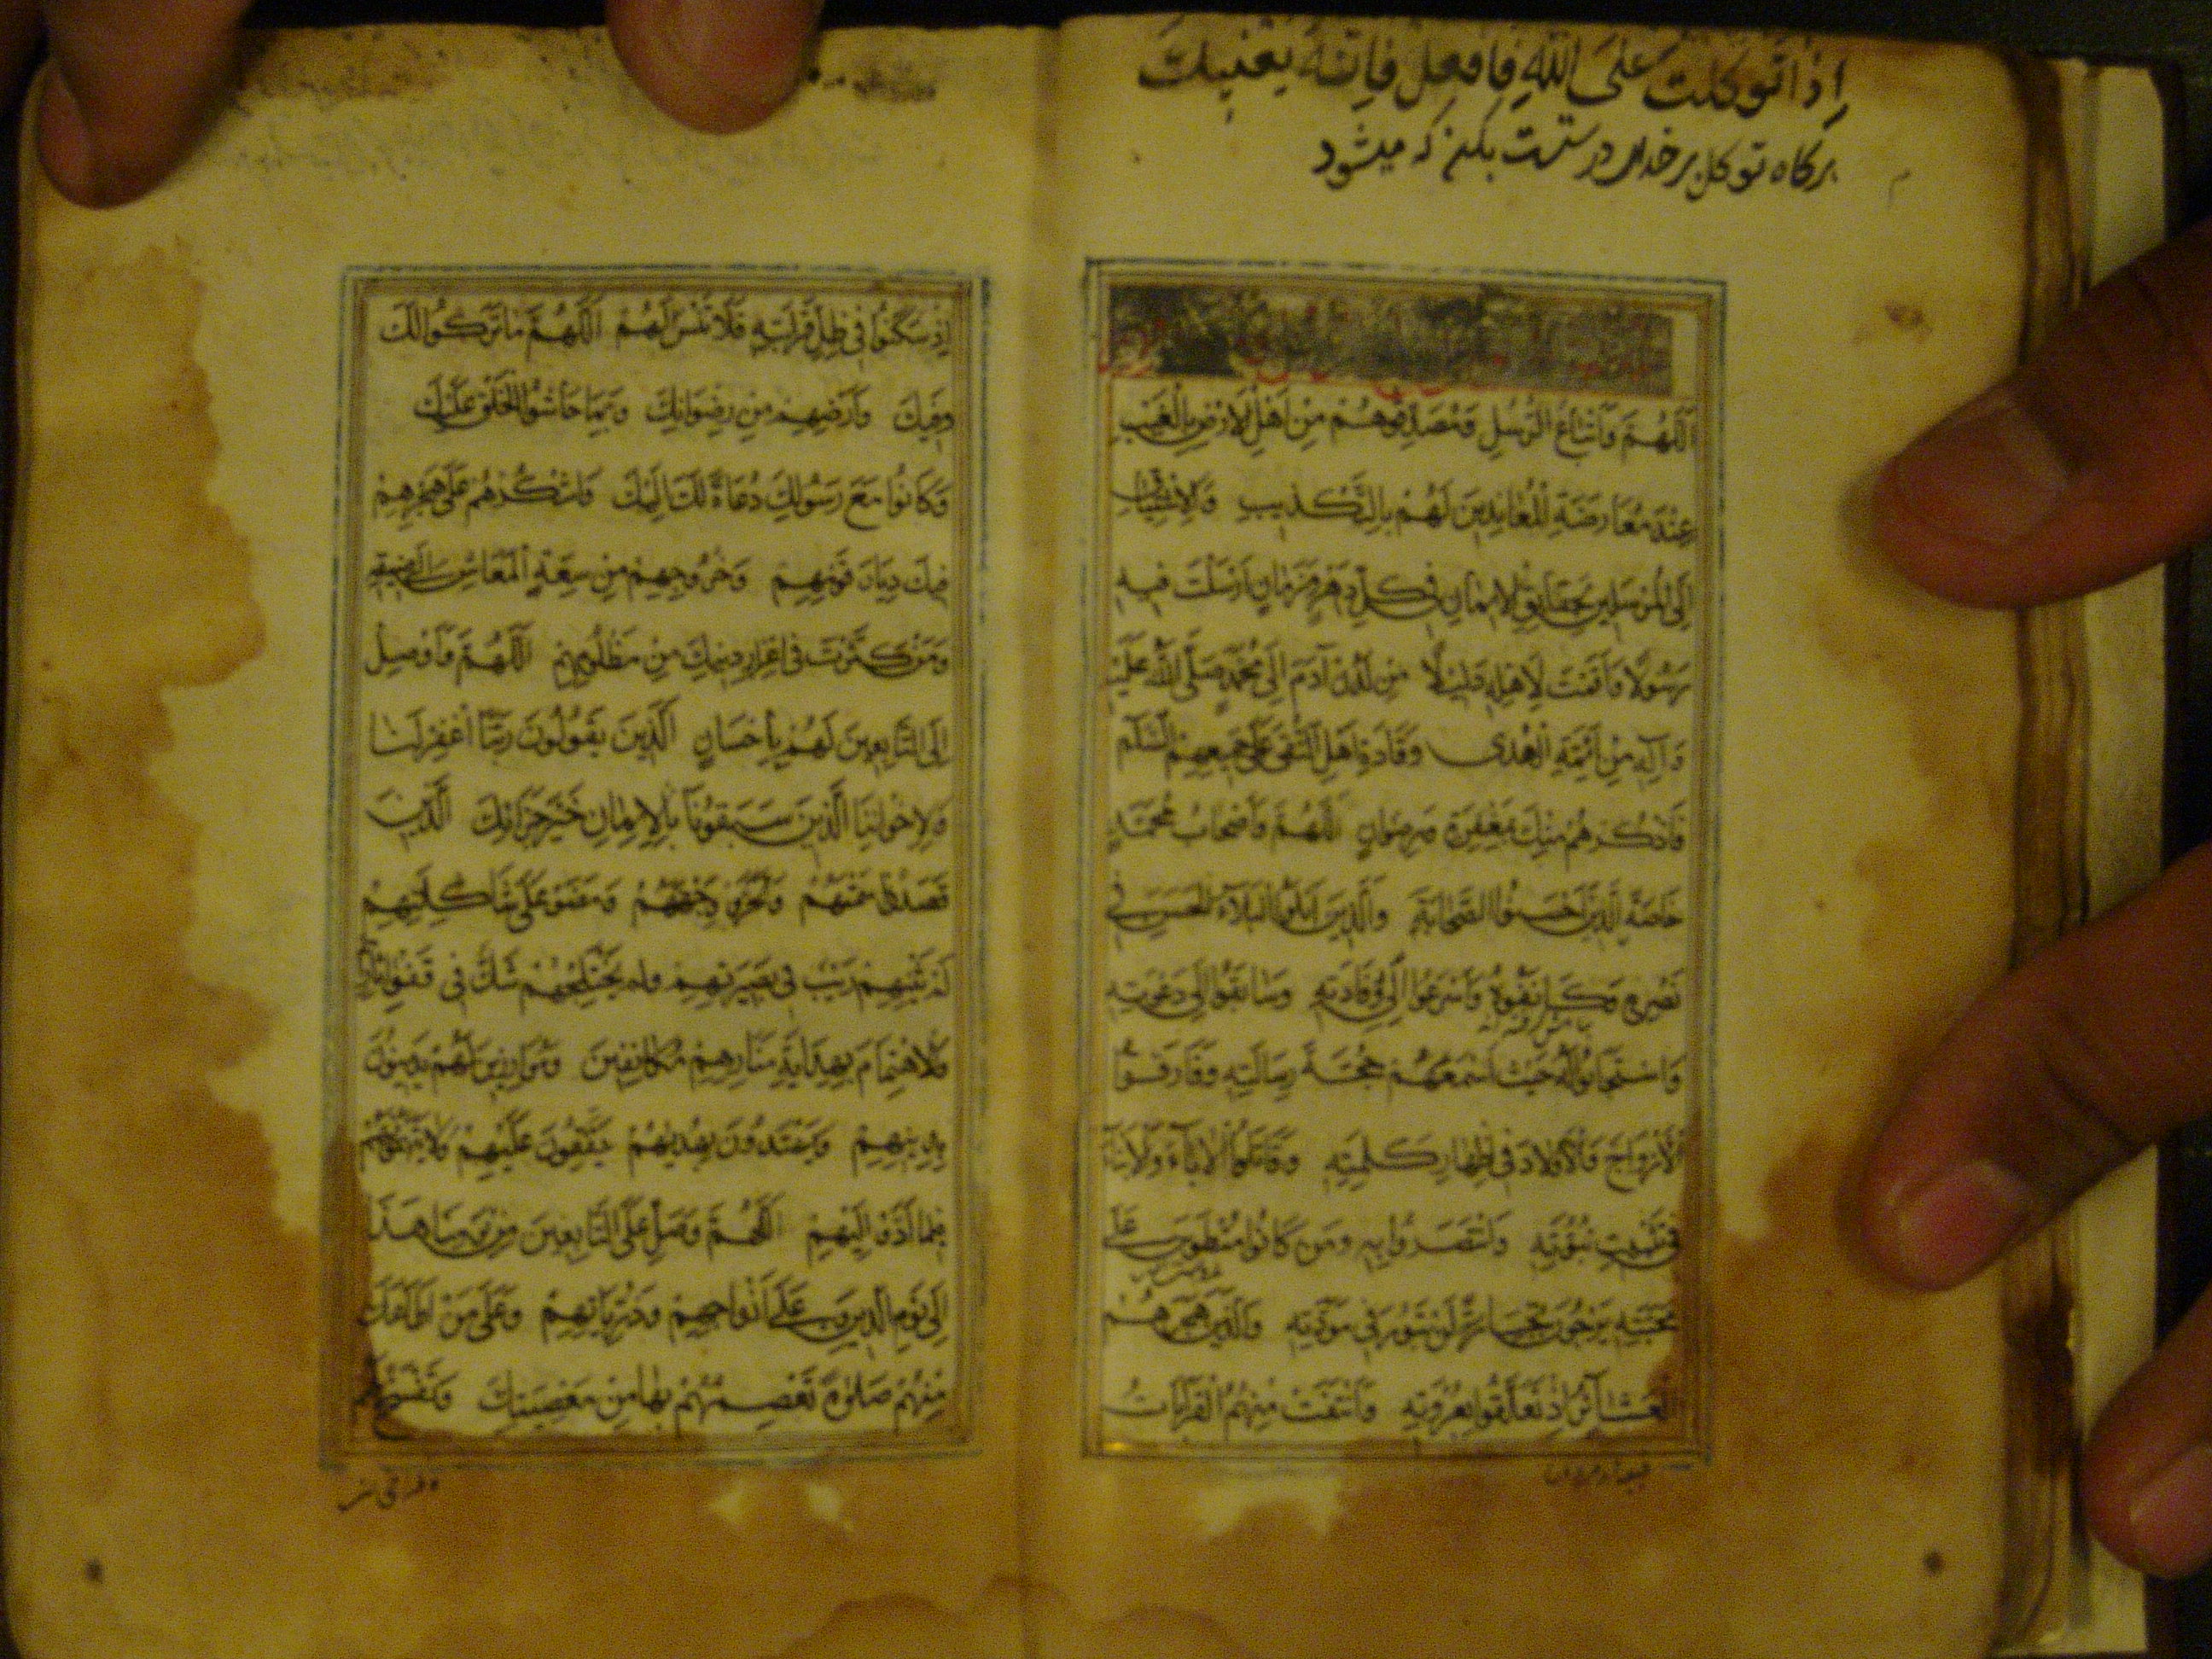 إذا توكلت على الله فافعل فإنه يعنيك
هرگاه توکل بر خدای درستست بکن که میشود
اَللّهُمَّ وَاَتْباعُ الرُّسُلِ وَمُصَدِّقُوهُمْ مِنْ اَهْلِ الْاَرْضِ بِالْغَيْبِ
عِنْدَ مُعارَضَةِ الْمُعانِدينَ لَهُمْ بِالتَّكْذيبِ وَالْاِشْتِياقِ
اِلَى الْمُرْسَلينَ بِحَقايِقِ الْايمانِ فى كُلِّ دَهْرٍ وَزَمانٍ اَرْسَلْتَ فيهِ
رَسُولًا وَاَقَمْتَ لِاَهْلِهِ دَليلًا مِنْ لَدُنْ آدَمَ اِلى مُحَمَّدٍ صَلَّى اللهُ عَلَيْهِ
وَآلِهِ مِنْ اَئِمَّةِ الْهُدى وَقادَةِ اَهْلِ التُّقى عَلى جَميعِهِمُ السَّلامُ
فَاذْكُرْهُمْ مِنْكَ بِمَغْفِرَةٍ وَرِضْوانٍ اَللّهُمَّ وَاَصْحابُ مُحَمَّدٍ
خاصَّةً الَّذينَ اَحْسَنُوا الصَّحابَةَ وَالَّذينَ اَبْلَوُا الْبَلاءَ الْحَسَنَ فى
نَصْرِهِ وَكانَفُوهُ وَاَسْرَعُوا اِلى وِفادَتِهِ وَسابَقُوا اِلى دَعْوَتِهِ
وَاسْتَجابُوا لَهُ حَيْثُ اَسْمَعَهُمْ حُجَّةَ رِسالَتِهِ وَفارَقُوا
الْاَزْواجَ وَالْاَوْلادَ فى اِظْهارِ كَلِمَتِهِ وَقاتَلُوا الْآباءَ وَالْاَبْناءَ
فى تَثْبيتِ نُبُوَّتِهِ وَانْتَصَرُوا بِهِ وَمَنْ كانُوا مُنْطَوينَ عَلى
مَحَبَّتِهِ يَرْجُونَ تِجارَةً لَنْ تَبُورَ فى مَوَدَّتِهِ وَالَّذينَ هَجَرَتْهُمُ
الْعَشائِرُ اِذْ تَعَلَّقُوا بِعُرْوَتِهِ وَانْتَفَتْ مِنْهُمُ الْقَراباتُ
اِذْ سَكَنُوا فى ظِلِّ قَرابَتِهِ فَلا تَنْسَ لَهُمُ اللّهُمَّ ما تَرَكُوا لَكَ
وَفيكَ وَاَرْضِهِمْ مِنْ رِضْوانِكَ وَبِما حاشُوا الْخَلْقَ عَلَيْكَ
وَكانُوا مَعَ رَسُولِكَ دُعاةً لَكَ اِلَيْكَ وَاشْكُرْهُمْ عَلى هَجْرِهِمْ
فيكَ دِيارَ قَوْمِهِمْ وَخُرُوجِهِمْ مِنْ سَعَةِ الْمَعاشِ اِلى ضيقِهِ
وَمَنْ كَثَّرْتَ فى اِعْزازِ دينِكَ مِنْ مَظْلُومِهِمْ اَللّهُمَّ وَاَوْصِلْ
اِلَى التّابِعينَ لَهُمْ بِاِحْسانٍ الَّذينَ يَقُولُونَ رَبَّنَا اغْفِرْ لَنا
وَلِاِخْوانِنَا الَّذينَ سَبَقُونا بِالْايمانِ خَيْرَ جَزائِكَ الَّذينَ
قَصَدُوا سَمْتَهُمْ وَتَحَرَّوْا وِجْهَتَهُمْ وَمَضَوْا عَلى شاكِلَتِهِمْ
لَمْ يَثْنِهِمْ رَيْبٌ فى بَصيرَتِهِمْ وَلَمْ يَخْتَلِجْهُمْ شَكٌّ فى قَفْوِ آثارِهِمْ
وَالْاِهْتِمامِ بِهِدايَةِ مَنارِهِمْ مُكانِفينَ وَمُوازِرينَ لَهُمْ يَدينُونَ
بِدينِهِمْ وَيَهْتَدُونَ بِهَدْيِهِمْ يَتَّفِقُونَ عَلَيْهِمْ وَلا يَتَّهِمُونَهُمْ
فيما اَدَّوْا اِلَيْهِمْ اَللّهُمَّ وَصَلِّ عَلَى التّابِعينَ مِنْ يَوْمِنا هذا
اِلى يَوْمِ الدّينِ وَعَلى اَزْواجِهِمْ وَذُرِّيّاتِهِمْ وَعَلى مَنْ اَطاعَكَ
مِنْهُمْ صَلوةً تَعْصِمُهُمْ بِها مِنْ مَعْصِيَتِكَ وَتَفْسَحُ لَهُمْ